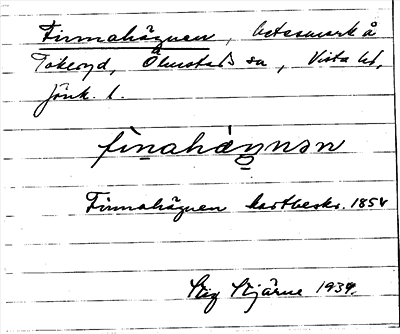 Finnahägnen, betesmark å
Tokeryd, Ölmstads sn, Vista hd,
Jönk. l.
finahäŋnən
Finnahägnen kartbeskr. 1854
Stig Stjärne 1939.